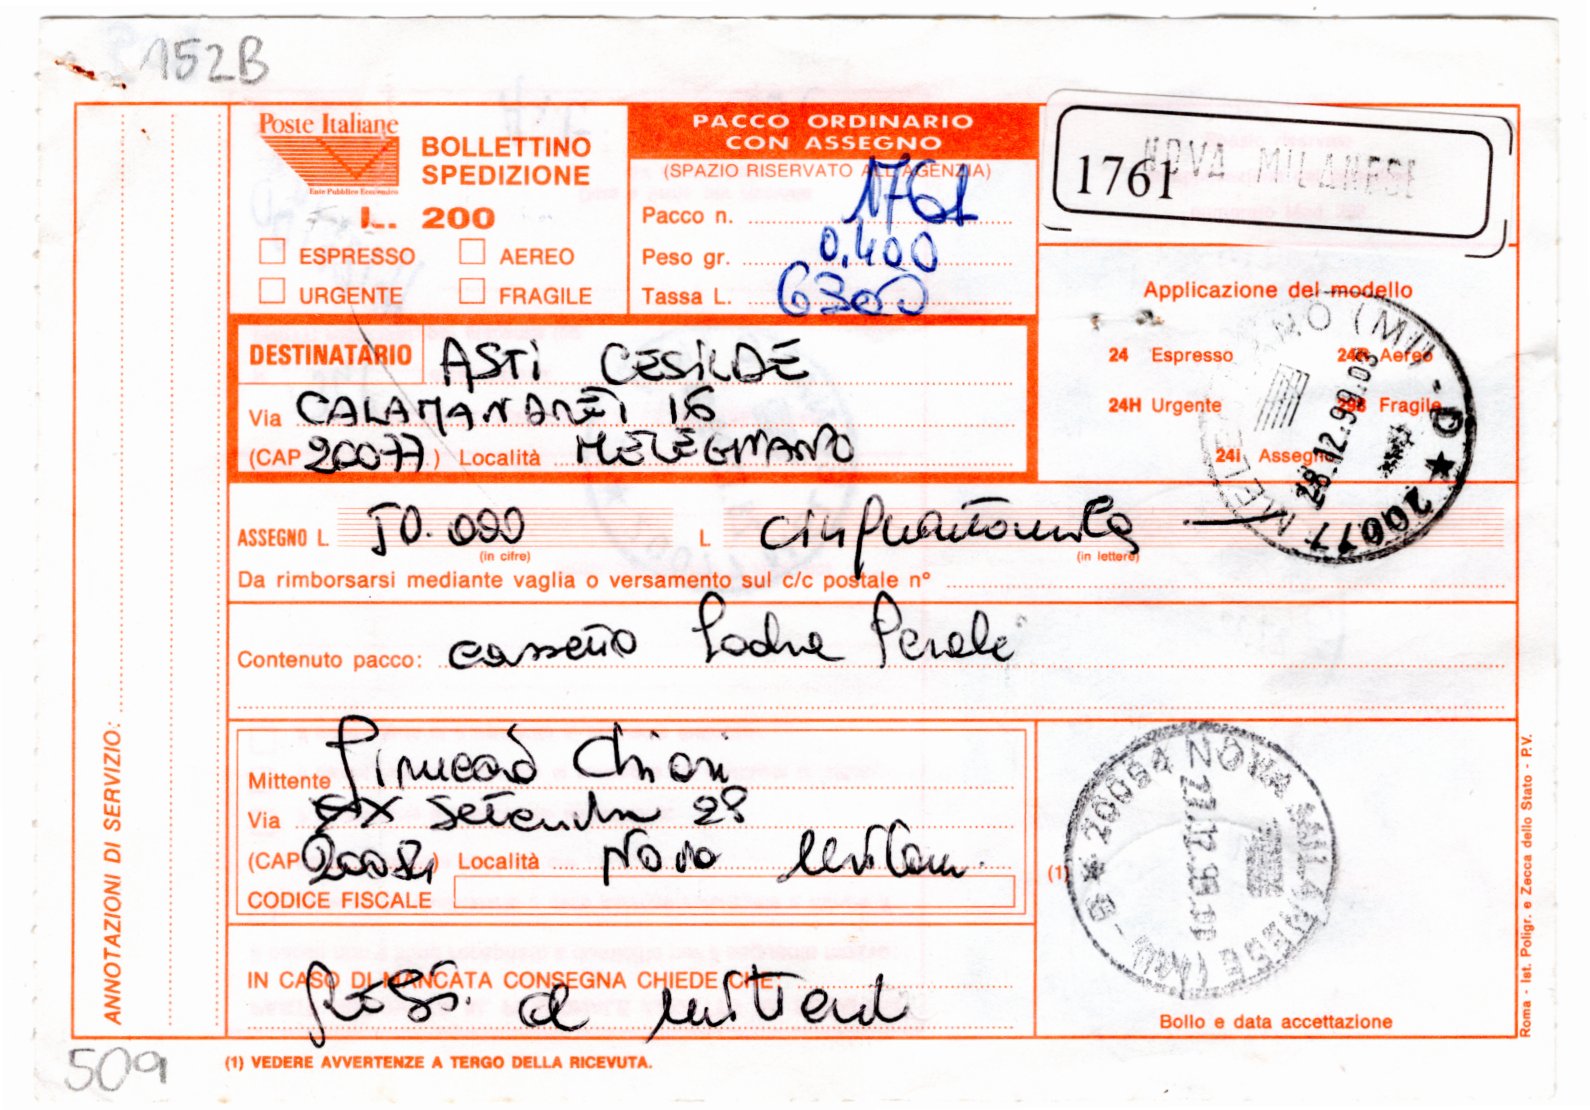 152B
Poste Italiane
Ente Pubblico Economico
BOLLETTINO
SPEDIZIONE
L. 200
ESPRESSO AEREO
URGENTE FRAGILE
PACCO ORDINARIO
CON ASSEGNO
(SPAZIO RISERVATO ALL'AGENZIA)
Pacco n. 1761
Peso gr. 0.400
Tassa L. 6300
1761 NOVA MILANESE
Applicazione del modello
24 Espresso 24B Aereo
24H Urgente 29B Fragile
24I Assegno
28.12.99.09
20077 ME
DESTINATARIO ASTI CESILDE
Via CALAMANDREI 16
(CAP 20077) Località MELEGNANO
ASSEGNO L. 50.000 L. cinquantamila
(in cifre) (in lettere)
Da rimborsarsi mediante vaglia o versamento sul c/c postale n°
Contenuto pacco: cassetta Padre
Mittente Chiari
Via XX Settembre 28
(CAP 20054) Località Nova Milan.
CODICE FISCALE
(1)
20054 NOVA MILANESE (MI)
27.12.99
IN CASO DI MANCATA CONSEGNA CHIEDE CHE:
al mittente
Bollo e data accettazione
ANNOTAZIONI DI SERVIZIO:
Roma - Ist. Poligr. e Zecca dello Stato - P.V.
509
(1) VEDERE AVVERTENZE A TERGO DELLA RICEVUTA.